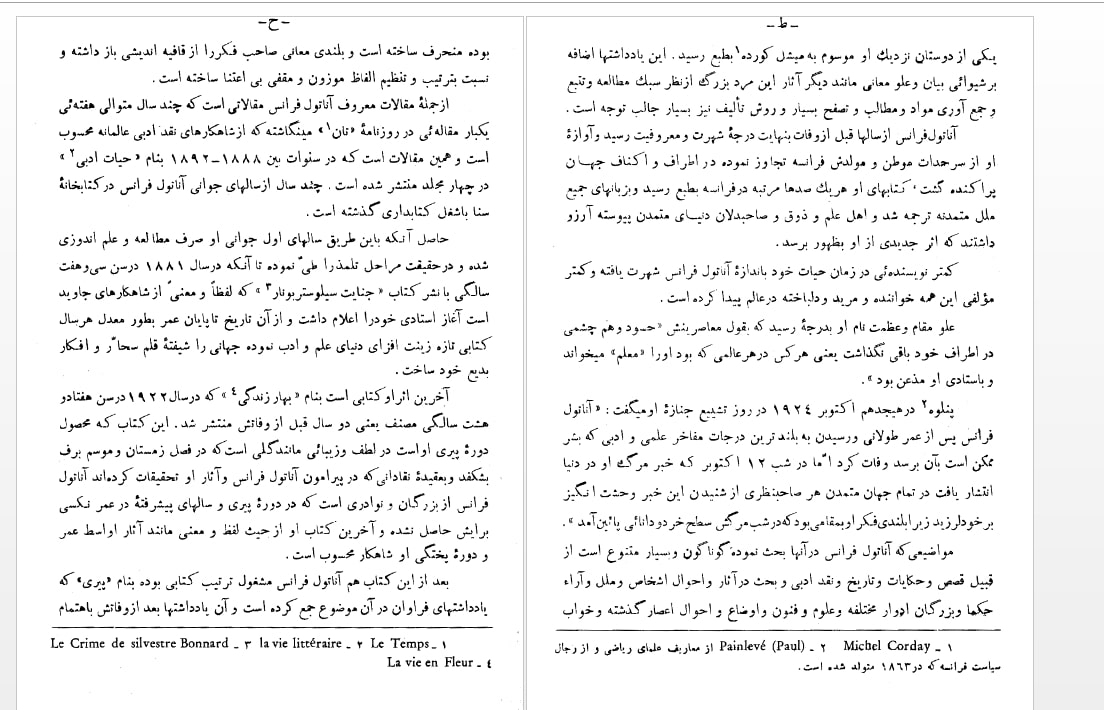 -ح-
بوده منحرف ساخته است و بلندی معانی صاحب فکررا از قافیه اندیشی باز داشته و
نسبت بترتیب و تنظیم الفاظ موزون و مقفی بی اعتنا ساخته است .
ازجملهٔ مقالات معروف آناتول فرانس مقالاتی است که چند سال متوالی هفته‌ئی
یکبار مقاله‌ئی در روزنامهٔ «تان۱» مینگاشته که ازشاهکارهای نقد ادبی عالمانه محسوب
است و همین مقالات است که در سنوات بین ۱۸۸۸-۱۸۹۲ بنام «حیات ادبی۲»
در چهار مجلد منتشر شده است . چند سال ازسالهای جوانی آناتول فرانس درکتابخانهٔ
سنا باشغل کتابداری گذشته است .
حاصل آنکه باین طریق سالهای اول جوانی او صرف مطالعه و علم اندوزی
شده و درحقیقت مراحل تلمذرا طیّ نموده تا آنکه درسال ۱۸۸۱ درسن سی‌وهفت
سالگی با نشر کتاب «جنایت سیلوستربونار۳» که لفظاً و معنیً از شاهکارهای جاوید
است آغاز استادی خودرا اعلام داشت و از آن تاریخ تاپایان عمر بطور معدل هرسال
کتابی تازه زینت افزای دنیای علم و ادب نموده جهانی را شیفتهٔ قلم سحاّر و افکار
بدیع خود ساخت .
آخرین اثر او کتابی است بنام «بهار زندگی۴» که درسال ۱۹۲۲ درسن هفتادو
هشت سالگی مصنف یعنی دو سال قبل ازوفاتش منتشر شد. این کتاب که محصول
دورهٔ پیری اواست در لطف وزیبائی مانندگلی است‌که در فصل زمستان وموسم برف
بشکفد وبعقیدهٔ نقادانی‌که در پیرامون آناتول فرانس وآثار او تحقیقات کرده‌اند آناتول
فرانس از بزرگان و نوادری است که در دورهٔ پیری و سالهای پیشرفتهٔ در عمر نکسی
برایش حاصل نشده و آخرین کتاب او از حیث لفظ و معنی مانند آثار اواسط عمر
و دورهٔ پختگی او شاهکار محسوب است .
بعد از این کتاب هم آناتول فرانس مشغول ترتیب کتابی بوده بنام «پیری» که
یادداشتهای فراوان در آن موضوع جمع کرده است و آن یادداشتها بعد ازوفاتش باهتمام
۱ ـ Le Temps ـ ۲ la vie littéraire ـ ۳ Le Crime de silvestre Bonnard
۴ ـ La vie en Fleur
-ط-
یکی از دوستان نزدیك او موسوم به میشل کورده۱ بطبع رسید . این یادداشتها اضافه
برشیوائی بیان وعلو معانی مانند دیگر آثار این مرد بزرگ ازنظر سبك مطالعه وتتبع
و جمع آوری مواد ومطالب و تصفح بسیار و روش تألیف نیز بسیار جالب توجه است .
آناتول‌فرانس ازسالها قبل ازوفات بنهایت درجهٔ شهرت ومعروفیت رسید وآوازهٔ
او از سرحدات موطن و مولدش فرانسه تجاوز نموده در اطراف و اکناف جهان
پراکنده گشت ، کتابهای او هریك صدها مرتبه درفرانسه بطبع رسید وبزبانهای جمیع
ملل متمدنه ترجمه شد و اهل علم و ذوق و صاحبدلان دنیای متمدن پیوسته آرزو
داشتند که اثر جدیدی از او بظهور برسد .
کمتر نویسنده‌ئی در زمان حیات خود باندازهٔ آناتول فرانس شهرت یافته وکمتر
مؤلفی این همه خواننده و مرید ودلباخته درعالم پیدا کرده است .
علو مقام وعظمت نام او بدرجهٔ رسید که بقول معاصرینش «حسود وهم چشمی
در اطراف خود باقی نگذاشت یعنی هرکس درهرعالمی که بود اورا «معلم» میخواند
و باستادی او مذعن بود » .
پنلوه۲ درهیجدهم اکتوبر ۱۹۲۴ در روز تشییع جنازهٔ اومیگفت : «آناتول
فرانس پس ازعمر طولانی ورسیدن به بلند ترین درجات مفاخر علمی و ادبی که بشر
ممکن است بآن برسد وفات کرد امّا در شب ۱۲ اکتوبر که خبر مرگ او در دنیا
انتشار یافت در تمام جهان متمدن هر صاحبنظری از شنیدن این خبر وحشت انگیز
برخودلرزید زیرابلندی‌فکراوبمقامی‌بودکه‌درشب مرگش سطح خردودانائی پائین‌آمد ».
مواضیعی‌که آناتول فرانس درآنها بحث نموده‌گوناگون وبسیار متنوع است از
قبیل قصص وحکایات وتاریخ ونقد ادبی و بحث درآثار واحوال اشخاص وملل وآراء
حکما وبزرگان ادوار مختلفه وعلوم و فنون واوضاع و احوال اعصار گذشته وخواب
۱ ـ Michel Corday ۲ ـ Painlevé (Paul) از معاریف علمای ریاضی و از رجال
سیاست فرانسه‌که در۱۸۶۳ متولد شده است .